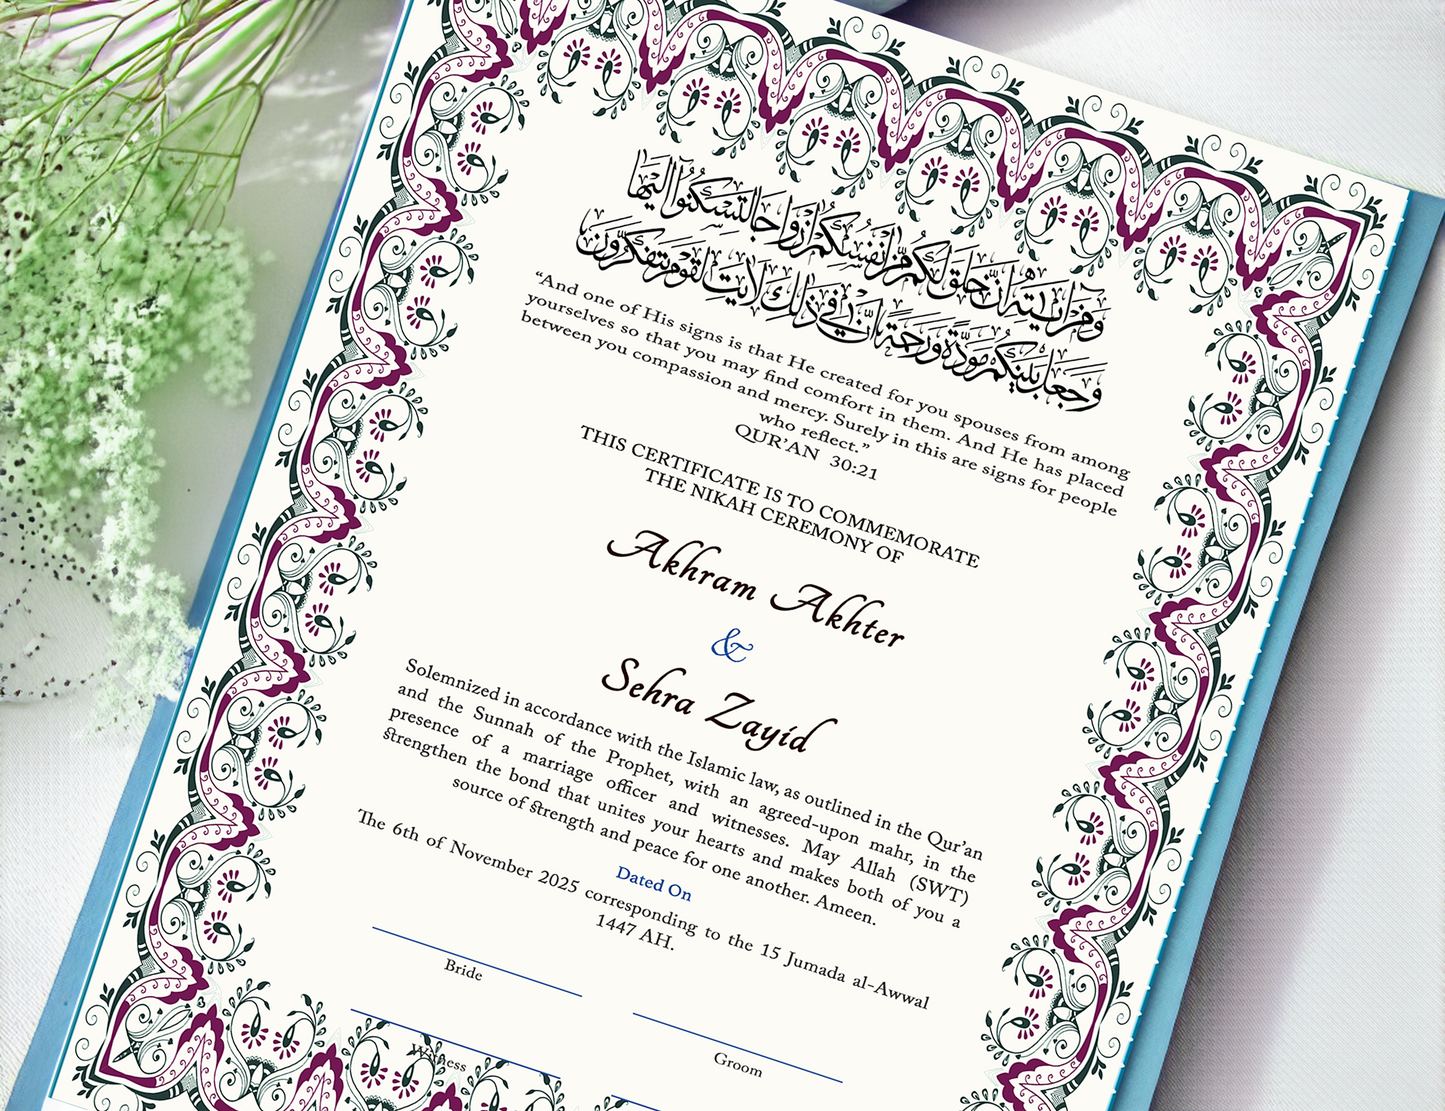 ومن ايته ان خلق لكم من انفسكم ازواجا لتسكنوا اليها
وجعل بينكم مودة ورحمة ان في ذلك لايت لقوم يتفكرون
“And one of His signs is that He created for you spouses from among
yourselves so that you may find comfort in them. And He has placed
between you compassion and mercy. Surely in this are signs for people
who reflect.”
QUR’AN 30:21
THIS CERTIFICATE IS TO COMMEMORATE
THE NIKAH CEREMONY OF
Akhram Akhter
&
Sehra Zayid
Solemnized in accordance with the Islamic law, as outlined in the Qur’an
and the Sunnah of the Prophet, with an agreed-upon mahr, in the
presence of a marriage officer and witnesses. May Allah (SWT)
strengthen the bond that unites your hearts and makes both of you a
source of strength and peace for one another. Ameen.
Dated On
The 6th of November 2025 corresponding to the 15 Jumada al-Awwal
1447 AH.
Bride
Groom
Witness